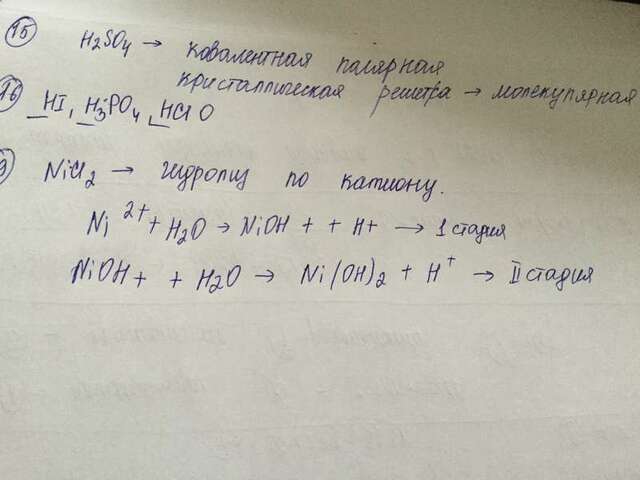 15 H2SO4 → ковалентная палярная
кристаллическая решетра → молекулярная
16 HI, H3PO4, HClO
9) NiCl2 → гидролиз по катиону.
Ni 2+ + H2O → NiOH + + H+ → 1 стадия
NiOH+ + H2O → Ni(OH)2 + H+ → II стадия